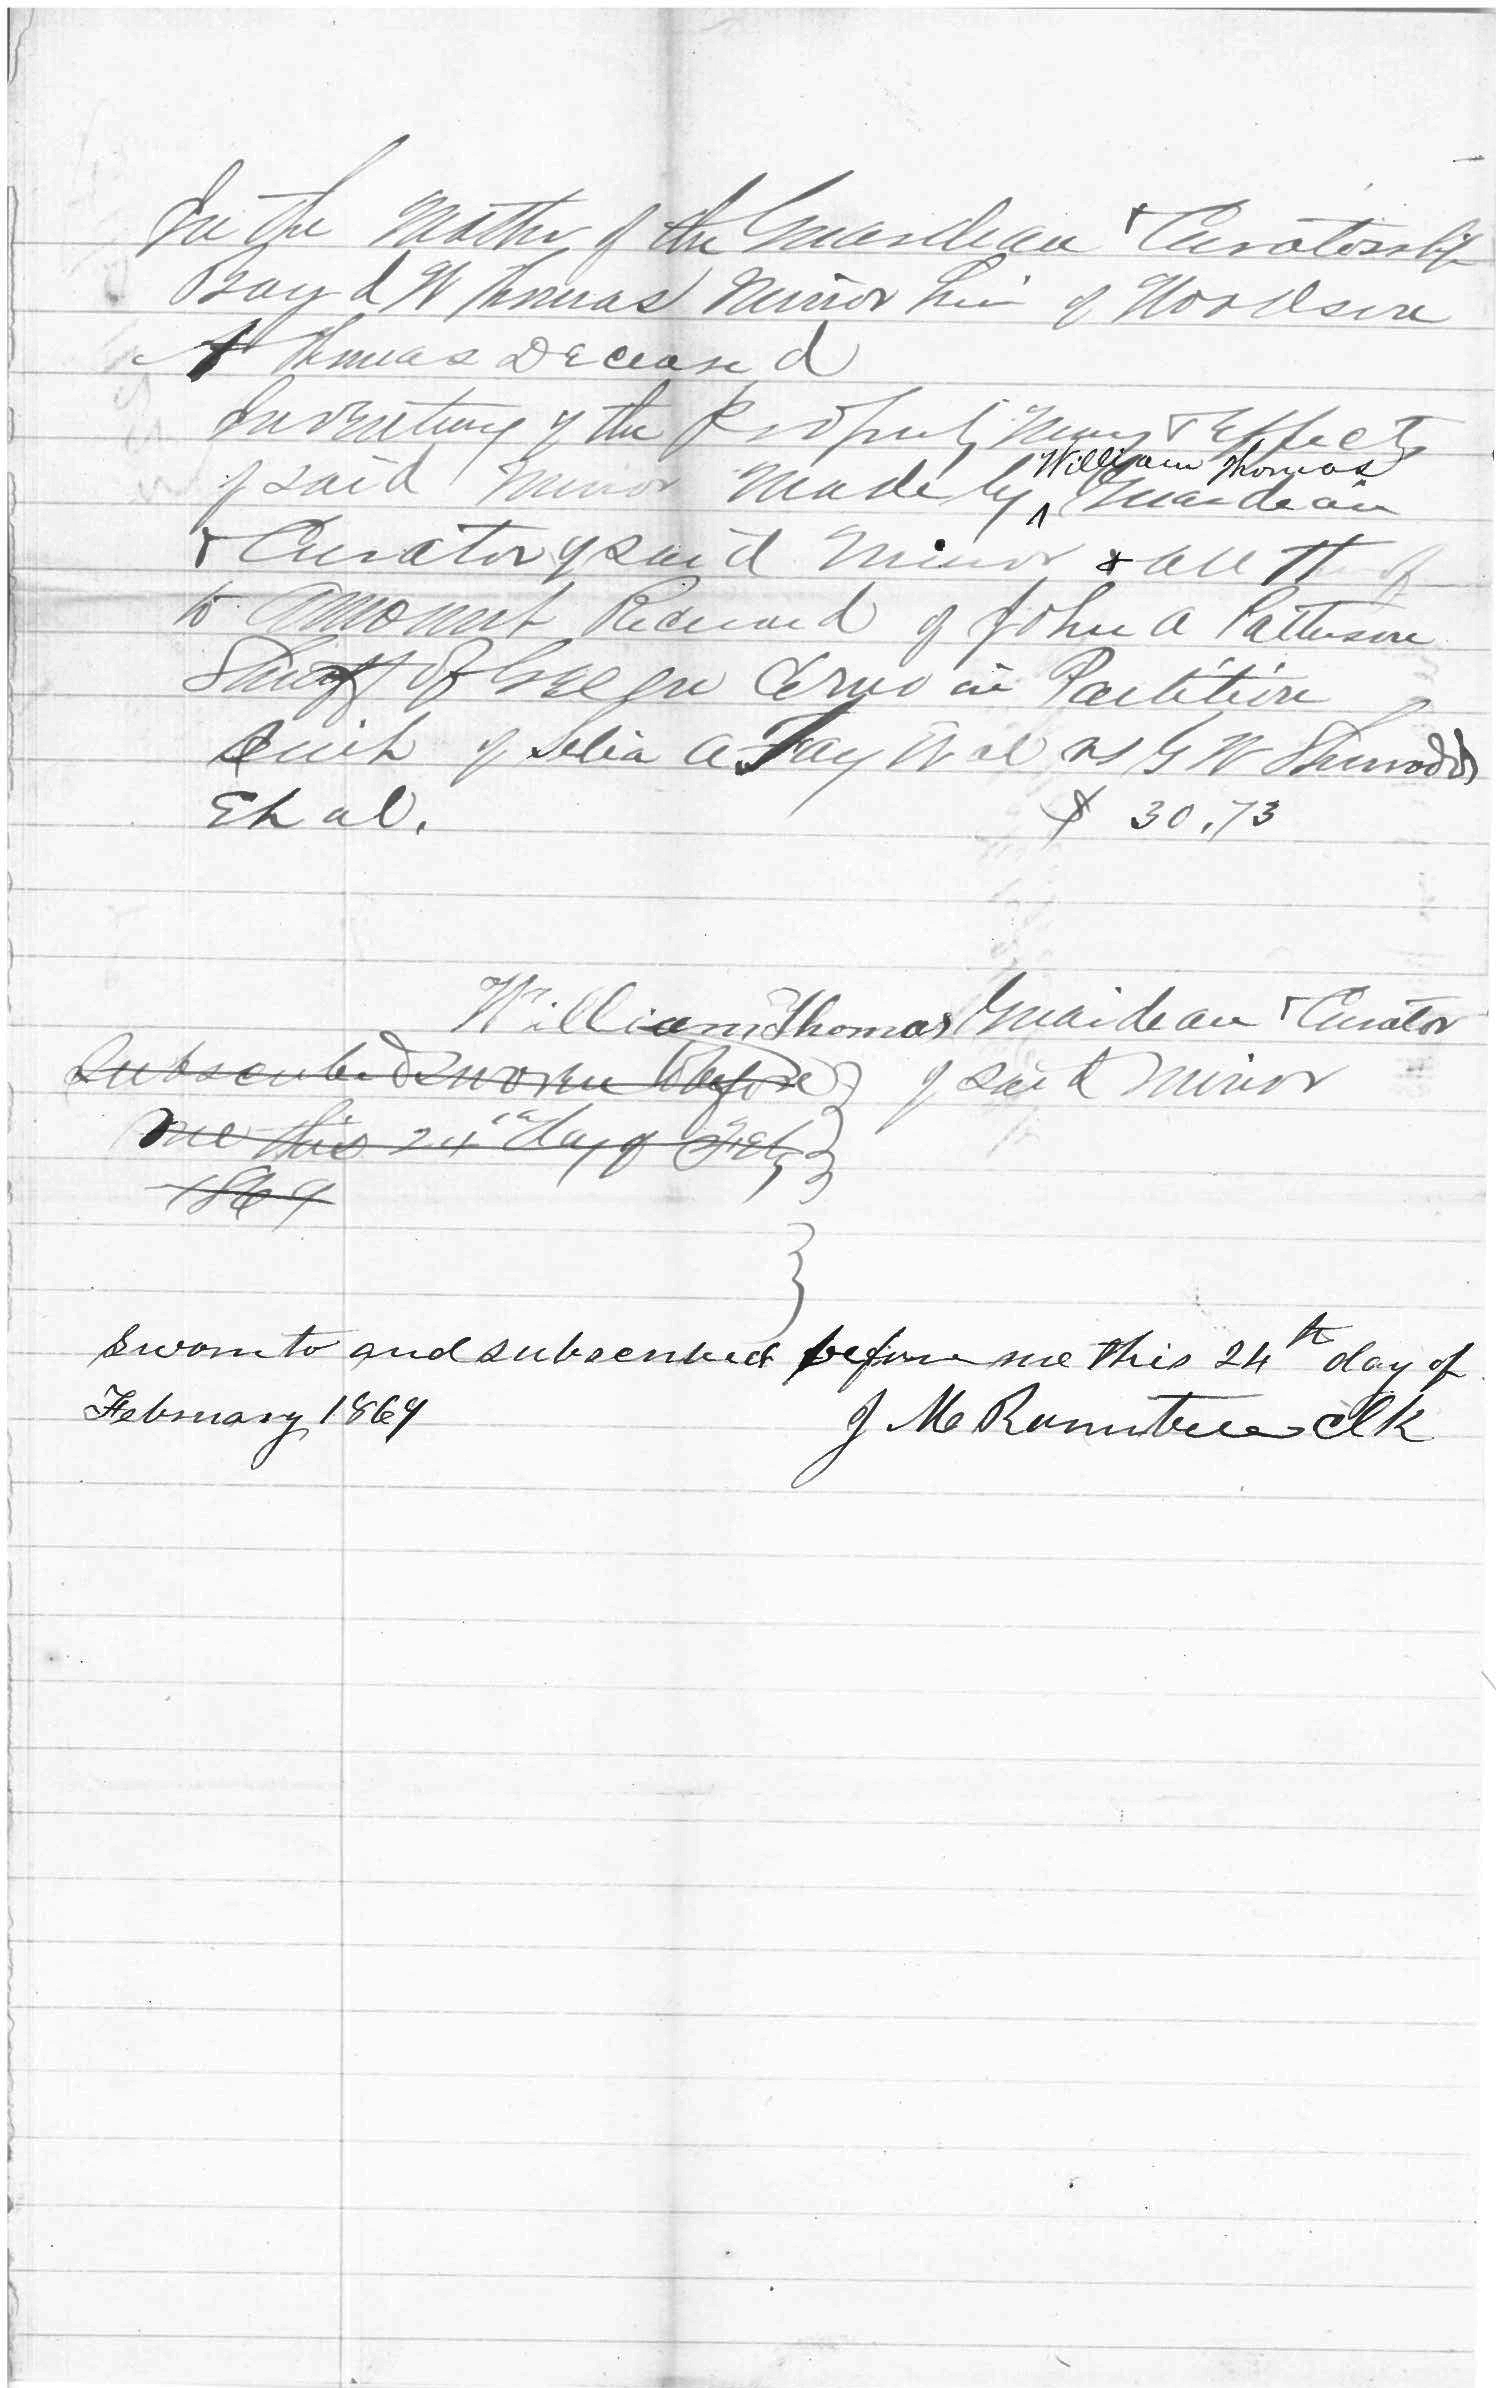 In the Matter of the Guardean & Curatorship
Boyd W Thomas Minor heir of Woodson
A Thomas Deceased
Inventory of the Property Money & Effects
of said Minor Made by ^ William Thomas Guardean
& Curator of said Minor &
to amount Received of John A Patterson
Sheriff of Green County in Partition
Suit of Selia A Fay et al vs G W Sherrod
Et al. $ 30.73
William Thomas Guardean & Curator
Subscribed & sworn before of said Minor
me this 24th day of Feb
1869
Sworn to and subscribed before me this 24th day of
February 1869 J M Rountree clk